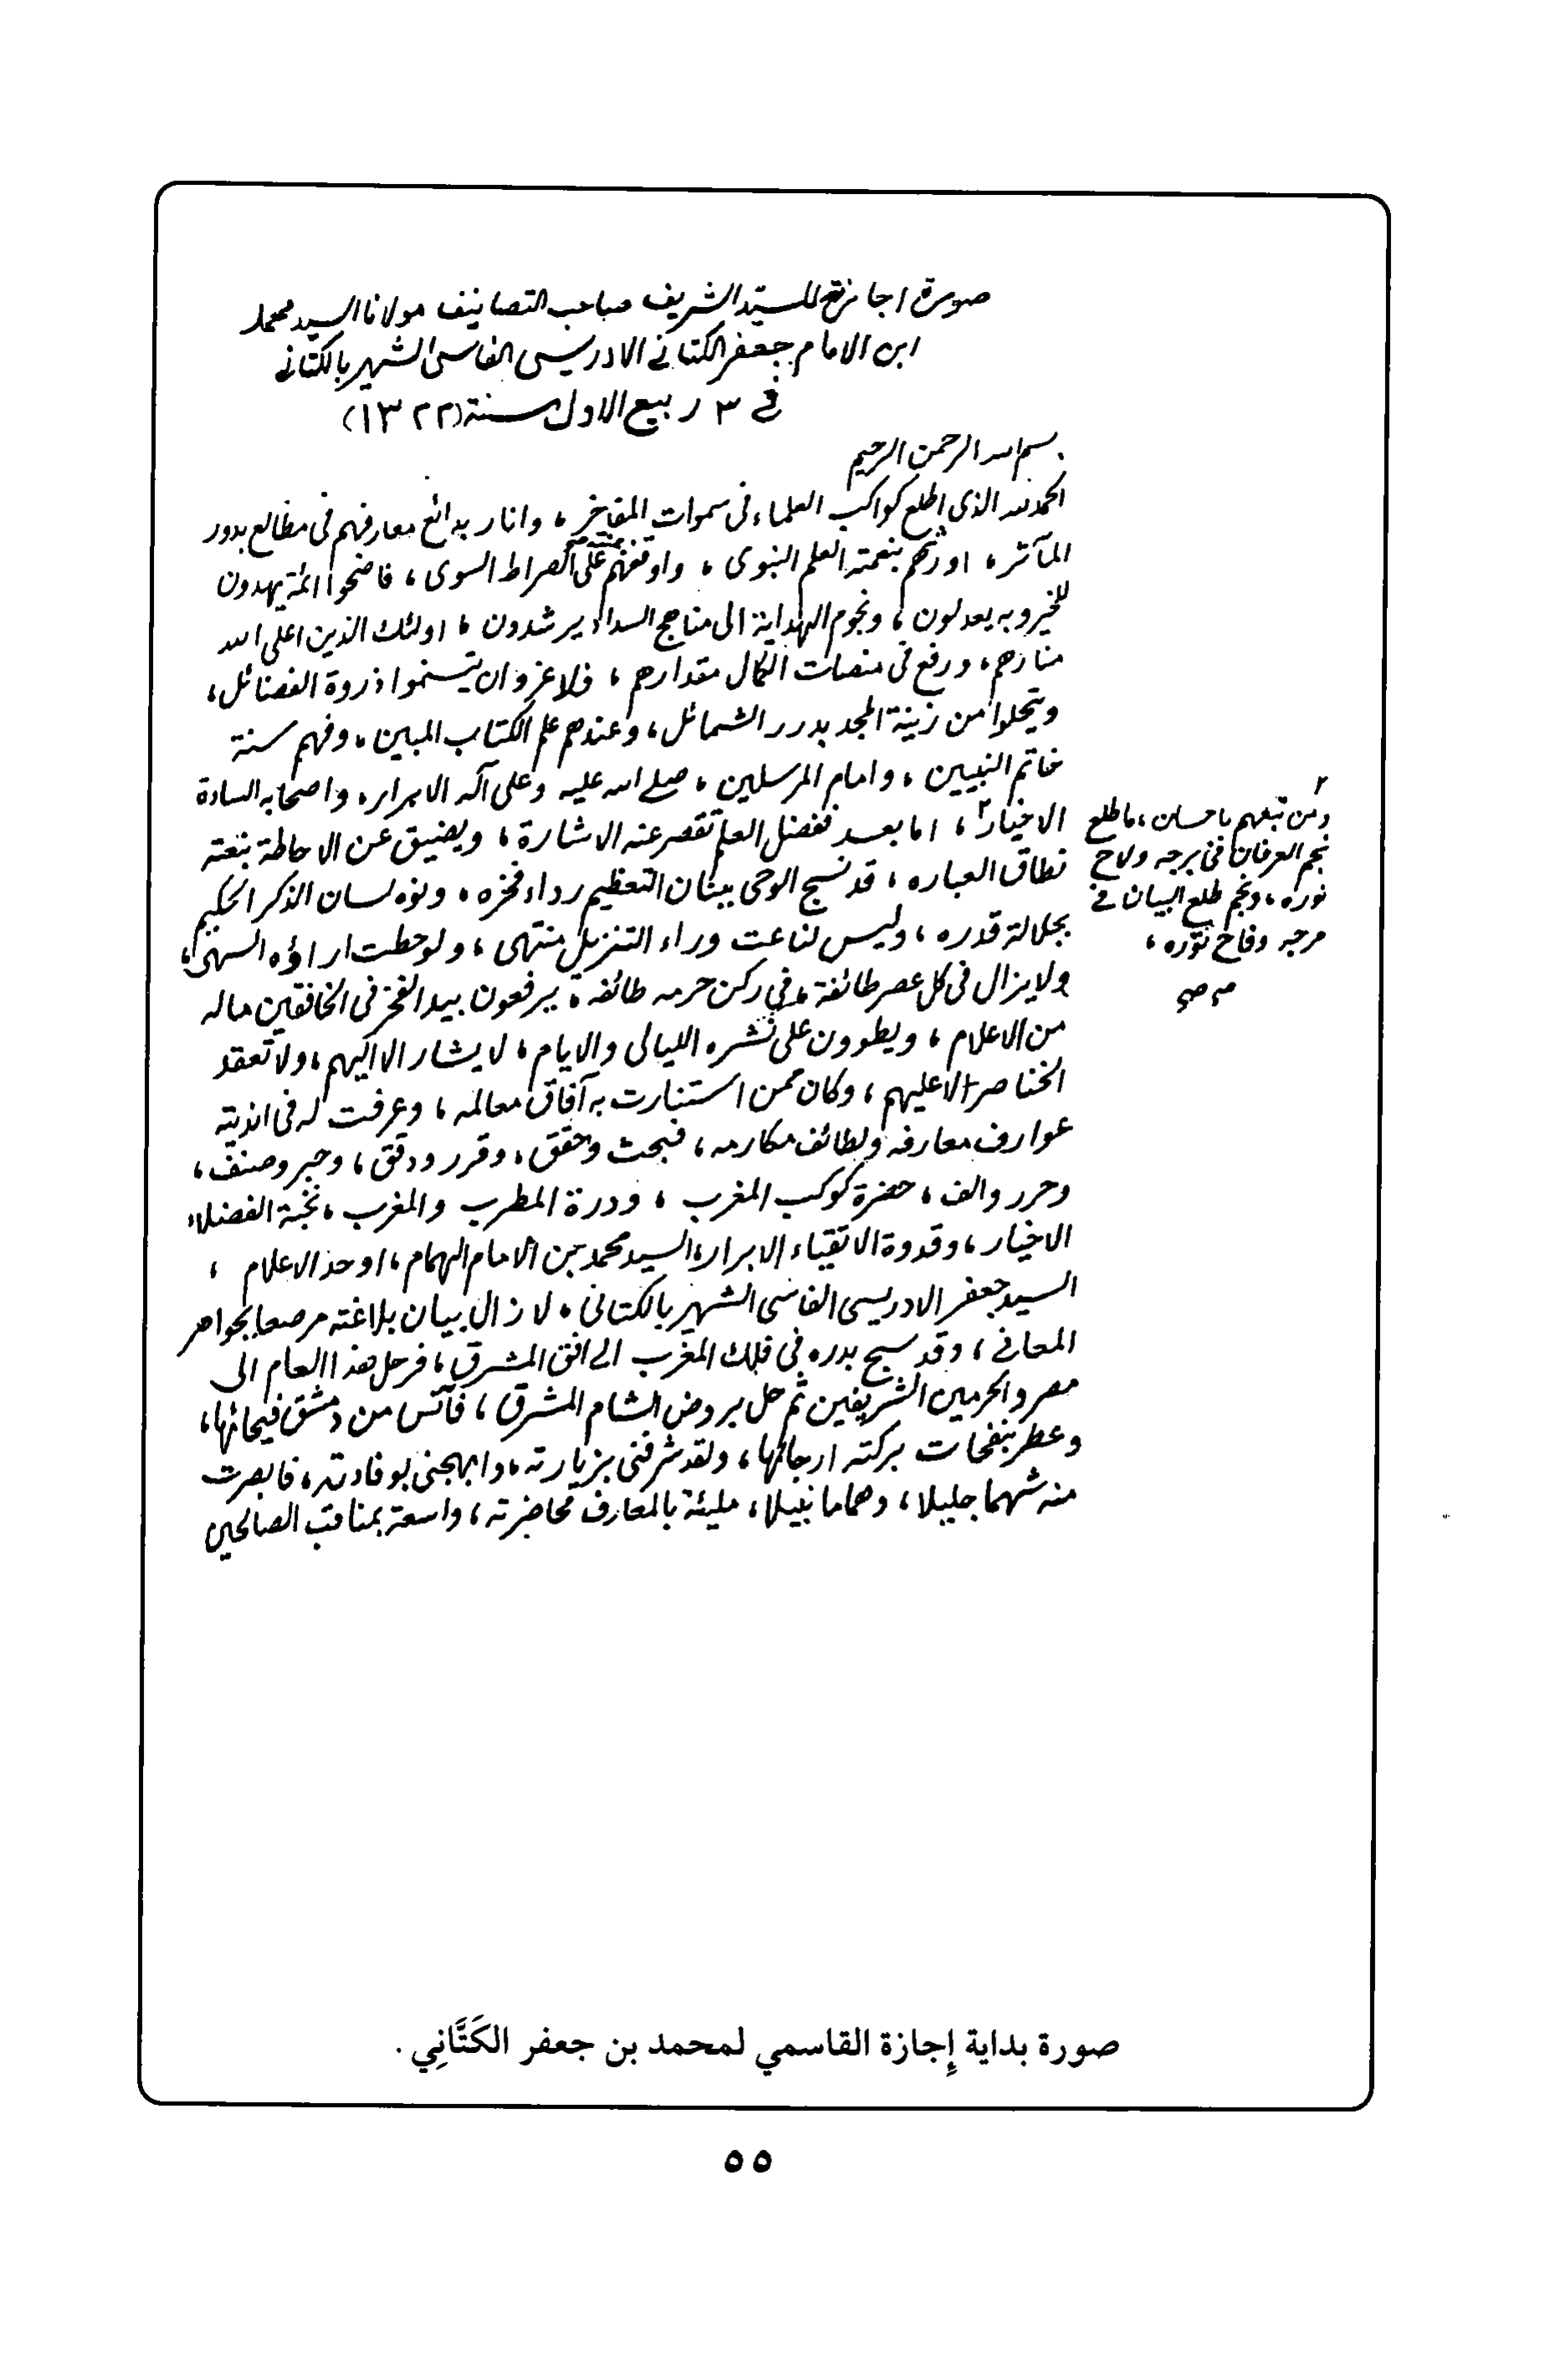 صورة اجازتي للسيد الشريف صاحب التصانيف مولانا السيد محمد
ابن الامام جعفر الكتاني الادريسي الفاسي الشهير بالكتاني
في ٣ ربيع الاول سنة (١٣٢٢)
بسم الله الرحمن الرحيم
الحمد لله الذي اطلع كواكب العلماء في سموات المفاخر، وانار بدائع معارفهم في مطالع بدور
المآثر، اورثهم بنعمته العلم النبوي، واوقفهم على الصراط السوي، فاضحوا ائمة يهدون
للخير وبه يعدلون، ونجوم الهداية الى مناهج السداد يرشدون، اولئك الذين اعلى الله
منارهم، ورفع في منصات الكمال مقدارهم، فلا غرو ان يتسنموا ذروة الفضائل،
ويتحلوا من زينة المجد بدرر الشمائل، وعندهم علم الكتاب المبين، وفهم سنة
خاتم النبيين، وامام المرسلين، صلى الله عليه وعلى آله الابرار، واصحابه السادة
الاخيار ٢، اما بعد ففضل العلم تقصر عنه الاشارة، ويضيق عن الاحاطة بنعته
نطاق العباره، قد نسج الوحي ببنان التعظيم رداء فخره، ونوه لسان الذكر الحكيم
بجلالة قدره، وليس لناعت وراء التنزيل منتهى، ولو حطت اراؤه السهى،
ولا يزال في كل عصر طائفة، في ركن حرمه طائفه، يرفعون بيد الفخر في الخافقين ماله
من الاعلام، ويطوون على نشره الليالي والايام، لا يشار الا اليهم، ولا تعقد
الخناصر الا عليهم، وكان ممن استنارت به آفاق معالمه، وعرفت له في انديته
عوارف معارفه ولطائف مكارمه، فبحث وحقق، وقرر ودقق، وحبر وصنف،
وحرر والف، حضرة كوكب المغرب، ودرة المطرب والمغرب، نخبة الفضلاء
الاخيار، وقدوة الاتقياء الابرار، السيد محمد بن الامام الهمام، اوحد الاعلام،
السيد جعفر الادريسي الفاسي الشهير بالكتاني، لا زال بيان بلاغته مرصعا بجواهر
المعاني، وقد سبح بدره في فلك المغرب الى افق المشرق، فرحل هذا العام الى
مصر والحرمين الشريفين ثم حل بروض الشام المشرق، فآنس من دمشق فيحائها،
وعطر بنفحات بركته ارجائها، ولقد شرفني بزيارته، وابهجني بوفادته، فابصرت
منه شهما جليلا، وهماما نبيلا، مليئة بالمعارف محاضرته، واسعة بمناقب الصالحين
٢
ومن تبعهم باحسان، ما طلع
نجم العرفان في برجه ولاح
نوره، ونجم طلع البيان في
مرجه وفاح نوره،
صح
صورة بداية إجازة القاسمي لمحمد بن جعفر الكَتَّانِي .
٥٥